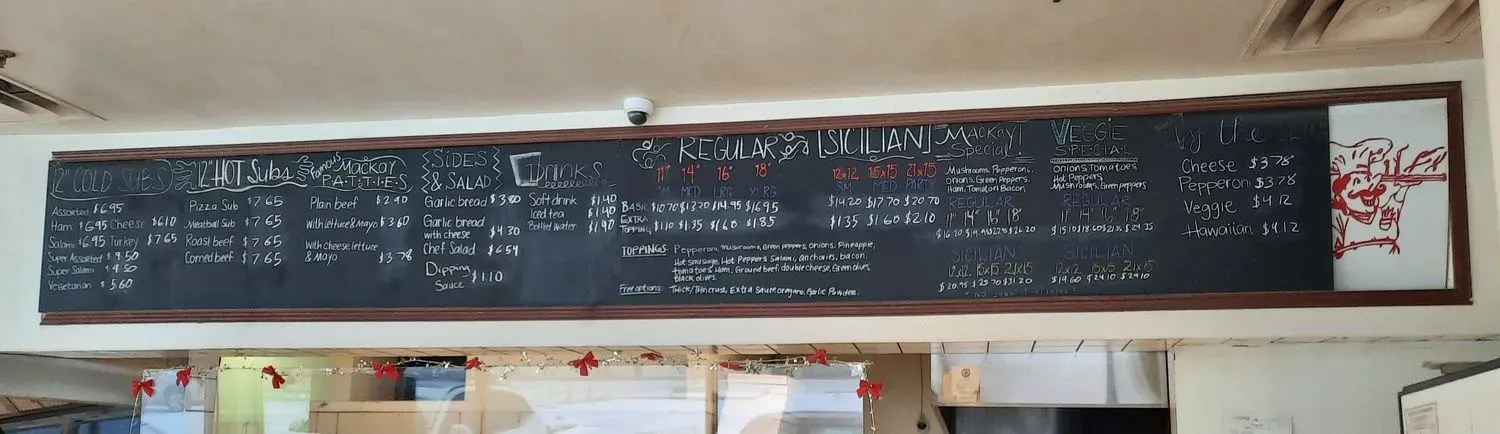 12" COLD SUBS
Assorted $6.95
Ham $6.95 Cheese $6.10
Salami $6.95 Turkey $7.65
Super Assorted $9.50
Super Salami
Vegetarian $5.60
12" HOT Subs
Pizza Sub $7.65
Meatball Sub $7.65
Roast beef $7.65
Corned beef $7.65
Famous Mackay
P·A·T·T·I·E·S
Plain beef $2.90
With lettuce & Mayo $3.60
With cheese lettuce
& Mayo $3.78
SIDES
& SALAD
Garlic bread $3.80
Garlic bread
with cheese $4.30
Chef Salad $6.54
Dipping
Sauce $1.10
DRINKS
Soft drink $1.40
Iced tea $1.40
Bottled water $1.90
REGULAR
11" 14" 16" 18"
SM MED LRG XLRG
BASIC $10.70 $13.20 $14.95 $16.95
EXTRA
TOPPING $1.10 $1.35 $1.60 $1.85
[SICILIAN]
12x12 15x15 21x15
SM MED PARTY
$14.20 $17.70 $20.70
$1.35 $1.60 $2.10
TOPPINGS: Pepperoni, Mushrooms, Green peppers, onions, Pineapple,
Hot sausage, Hot Peppers Salami, anchovies, bacon,
tomatoes Ham, Ground beef, double cheese, Green olives,
Black olives.
Free options: Thick/Thin crust, Extra Sauce oregano, Garlic Powder.
MacKay
Special!
Mushrooms, Pepperoni,
Onions, Green Peppers,
Ham, Tomato & Bacon
REGULAR
11" 14" 16" 18"
SICILIAN
12x12 15x15 21x15
$20.95 $31.20
VEGGIE
SPECIAL
Onions, Tomatoes,
Hot Peppers,
Mushrooms, Green peppers
REGULAR
11" 14" 16" 18"
SICILIAN
12x12 15x15 21x15
$19.60 $24.10 $29.10
By the
Cheese $3.78
Pepperoni $3.78
Veggie $4.12
Hawaiian $4.12